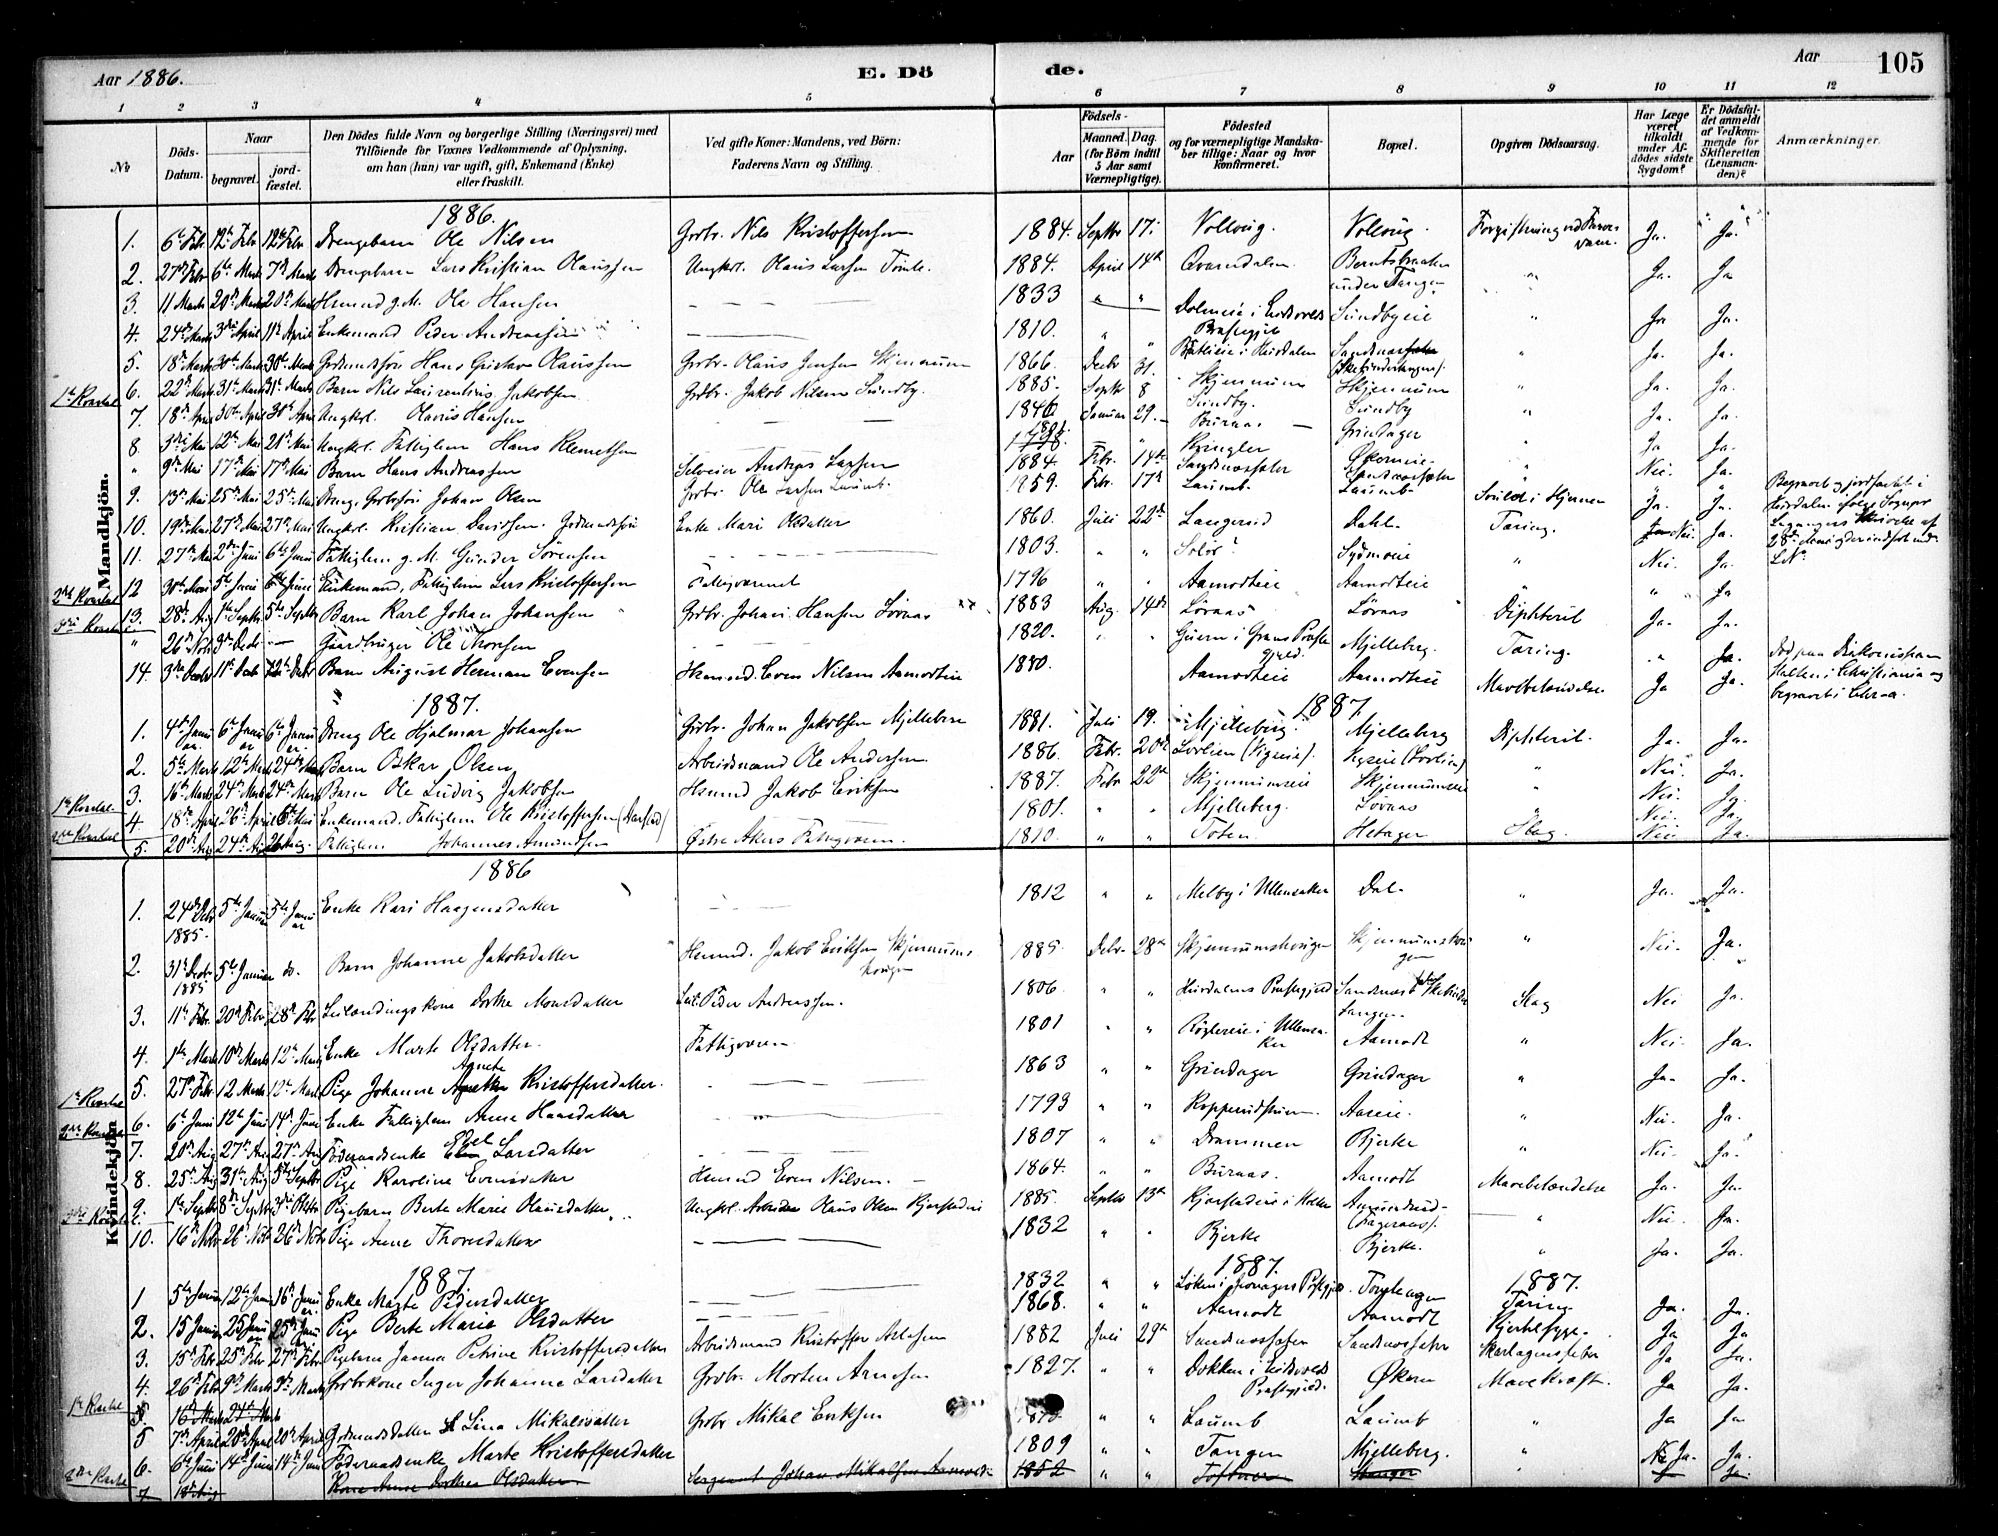 Aar 1886. E. Dö de. Aar 105
1 2 3 4 5 6 7 8 9 10 11 12
No Döds-Datum. Naar begravet. jordfæstet. Den Dödes fulde Navn og borgerlige Stilling (Næringsvei) med Tilföiende for Voxnes Vedkommende af Oplysning, om han (hun) var ugift, gift, Enkemand (Enke) eller fraskilt. Ved gifte Koner: Mandens, ved Börn: Faderens Navn og Stilling. Födsels- Aar Maaned. Dag. (for Börn indtil 5 Aar samt Værnepligtige). Födested og for værnepligtige Mandskaber tillige: Naar og hvor konfirmeret. Bopæl. Opgiven Dödsaarsag. Har Læge været tilkaldt under Afdödes sidste Sygdom? Er Dödsfaldet anmeldt af Vedkommende for Skifteretten (Lensmanden)? Anmærkninger.
Mandkjön.
1886.
1. 6te Febr 12te Febr 12te Febr Drengebarn Ole Nilsen Grdbr. Nils Kristoffersen 1884. Septbr 17. Vollaug. Vollaug. Forgiftning ved Ja. Ja.
2. 27de Febr 6te Marts 7de Marts Drengebarn Lars Kristian Olaussen Ungkrl. Olaus Larsen Tømte. 1884. April 14de Qværndalen Berntsbraaten under Tangen " Ja. Ja
3. 11 Marts 20de Marts 20de Marts Hsmnd g. M. Ole Hansen — — — 1833 " " Dolmeie i Eidsvolds Præstegjæld Sundbyeie " Ja Ja.
4. 24de Marts 3die April 11te April Enkemand Peder Andreassen — — 1810. " " Ja. Ja.
5. 18de Marts 30te Marts 30te Marts Grdmndssøn Hans Gustav Olaussen Grdbr. Olaus Jensen Skjennum 1866 Decbr 31. Skjennum Skjennum " Ja. Ja.
1ste Kvartal 6. 22de Marts 31te Marts 31te Marts Barn Nils Laurentius Jakobsen Grdbr. Jakob Nilsen Sundby. 1885. Septbr 8 Sundby. Sundby " Ja. Ja.
7. 18de April 30te April 30te April Ungkrl. Olavus Hansen — — 1846 Januar 29. Buraas Grindager " Ja. Ja.
8. 3die Mai 12te Mai 21de Mai Ungkrl. Fattiglem Hans Klemetsen — — — Ja Ja.
" 9de Mai 17de Mai 17de Mai Barn Hans Andreassen Selveier Andreas Larsen 1884. Febr. 14de Sandnæssæter Sandnæssæter " Nei Ja.
9. 13de Mai 25de Mai 25de Mai Dreng. Grdbrsøn Johan Olsen Grdbr. Ole Larsen Laumb. 1859. Febr. 17de Laumb. Laumb. Ja. Ja. Begravet og jordfæstet i Hurdalen ifølge Sognepr
10. 19de Mai 27de Mai 27de Mai Ungkrl. Kristian Davidsen. Grdmndssøn Enke Mari Olsdatter 1860. Juli 22de Langerud Dahl. Tæring. Nei. Ja. Skrivelse af
11. 27de Mai 2den Juni 6te Juni Fattiglem g. M. Gunder Sørensen — — — 1803. " " Solør? Sydmoeie " Nei. Ja. 28de Juni
2det Kvartal 12 30te Mai 5te Juni 6te Juni Enkemand, Fattiglem Lars Kristoffersen Fattigvæsenet 1796 " " Aamodteie Aamodteie " " Ja
3die Kvartal 13. 28de Aug 1ste Septbr 5te Septbr Barn Karl Johan Johansen Grdbr. Johan Hansen Løvaas 1883 Aug. 14de Løvaas Løvaas Diphterit Ja. Ja.
" 26de Novb 3die Decb — Gaardbruger Ole Thorsen — — 1820. " " i Grans Præstegjæld. Mjelleberg. Tæring. " Ja. Død paa Diakonissean
14. 3die Decbr 11te Decb 12te Decbr Barn August Herman Evensen Hsmnd. Even Nilsen Aamodteie 1880. Aamodteie Aamodteie Mavebetændelse. Ja Ja. stalten i Christiania og begravet i
1887. 1887.
1. 4de Januar 6te Januar 6te Januar Dreng Ole Hjalmar Johansen Grdbr. Johan Jakobsen Mjelleberg 1881. Juli 19. Mjelleberg. Mjelleberg Diphterit. Ja. Ja.
2. 5te Marts 12te Marts 24de Marts Barn Oskar Olsen Arbeidsmand Ole Andersen 1886. Febr. 20de Lovlien Nei. Ja.
3. 16te Marts 24de Marts 24de Marts Barn Ole Ludvig Jakobsen Hsmnd Jakob Eriksen 1887. Febr 22de Skjennumseie Skjennumseie " Nei. Ja.
1ste Kvartal 4. 18de April 26de April 6te Mai Enkemand. Fattiglem Ole Kristoffersen 1801. " " Mjelleberg. Løvaas " Nei. Ja.
2det Kvartal 5. 20de Aug 24de Aug Fattiglem Johannes Amundsen Østre Akers Fattigvæsen. 1810 " " Toten. Hetager Slag. Nei Ja.
Kvindekjön
1886
1. 24de Decbr 1885. 5te Januar 5te Januar Enke Kari Haagensdatter — — 1812 " " Melby i Ullensaker Dal. " Ja. Ja.
2. 31te Decbr 1885 5te Januar do. Barn Johanne Jakobsdatter Hsmnd. Jakob Eriksen Skjennumshaugen 1885. Decbr. 28de Skjennumshaugen Skjennumshaugen " Nei. Ja.
3. 11te Febr. 20de Febr 28de Febr Leilændingskone Dorthe Monsdatter Peder Andreassen. 1806 " " Hurdalens Præstegjæld Slag Nei Ja.
4. 1ste Marts 10de Marts 12te Marts Enke Marte Olsdatter. Fattigvæsen 1801 " " i Ullensaker Aamodt " Nei. Ja.
1ste Kvartal 5. 27de Febr. 12 Marts 12te Marts Pige Johanne Agnete Kristoffersdatter. — — — 1863 " " Grindager Grindager " Ja. Ja.
2det Kvartal 6. 6te Juni 12te Juni 14de Juni Enke Fattiglem Anne Hansdatter — — 1793 " " Aaseie. " Nei. Ja.
7. 20de Aug 27de Aug 27de Aug Føderaadsenke Larsdatter — — 1807 " " Drammen Bjerke " Nei. Ja.
8. 25de Aug 31te Aug 5te Septbr Pige Karoline Evensdatter Hsmnd Even Nilsen. — 1864. " " Buraas. Aamodt Mavebetændelse Ja. Ja.
3die Kvartal 9. 1ste Septbr 8de Septbr 3die Oktbr Pigebarn Berte Marie Olausdatter Ungkrl. Arbeider Olaus Olsen 1885. Septbr 13de " Nei. Ja.
10. 16de Novb 26de Novb 26de Novb Pige Anne Thorsdatter — — — 1832 " " Bjerke Bjerke. " Ja. Ja.
1887. 1887. 1887.
1 5te Januar 12te Januar 16de Januar Enke Marte Pedersdatter — — 1832 " " Tæring Ja. Ja.
2. 15 Januar 25 Januar 25de Januar Pige Berte Marie Olsdatter — — 1868. " " Aamodt Aamodt Hjertesyge. Ja Ja
3. 15de Febr 25de Febr 27de Febr Pigebarn Janna Petrine Kristoffersdatter Arbeidsmand Kristoffer 1882 Juli 29de Sandnæssæter Sandnæssæter Skarlagensfeber Ja Ja.
4. 26de Febr 9de Marts 9de Marts Grdbrkone Inger Johanne Larsdatter Grdbr. Morten Arnesen 1827. " " Dokken i Eidsvolds Præstegjæld. Økern Mavekræft. Ja Ja.
1ste Kvartal 5. 16de Marts 24de Marts
5 7de April 20de April 20de April Grdmndsdatter Lina Mikalsdatter Grdbr Mikal Eriksen " " Laumb Laumb " Ja Ja.
6. 6te Juni 14de Juni 14de Juni Føderaadsenke Marte Kristoffersdatter 1809 " " Tangen Mjelleberg. " Ja. Ja.
2det Kvartal 7 18de Aug Kone Anne Dorthea Olsdatter Sergeant Johan Mikalsen Aamodt 1852 " " Ja.